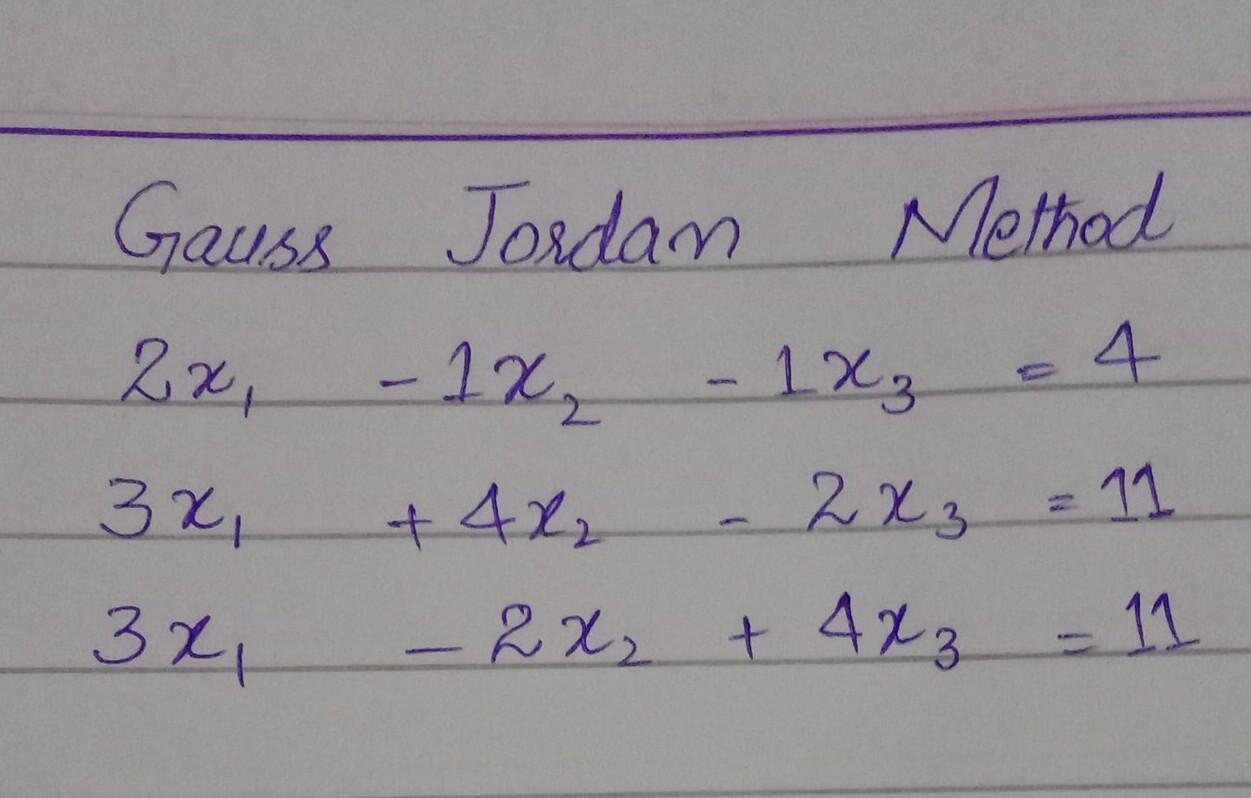 Gauss Jordan Method
2x₁ - 1x₂ - 1x₃ = 4
3x₁ + 4x₂ - 2x₃ = 11
3x₁ - 2x₂ + 4x₃ = 11